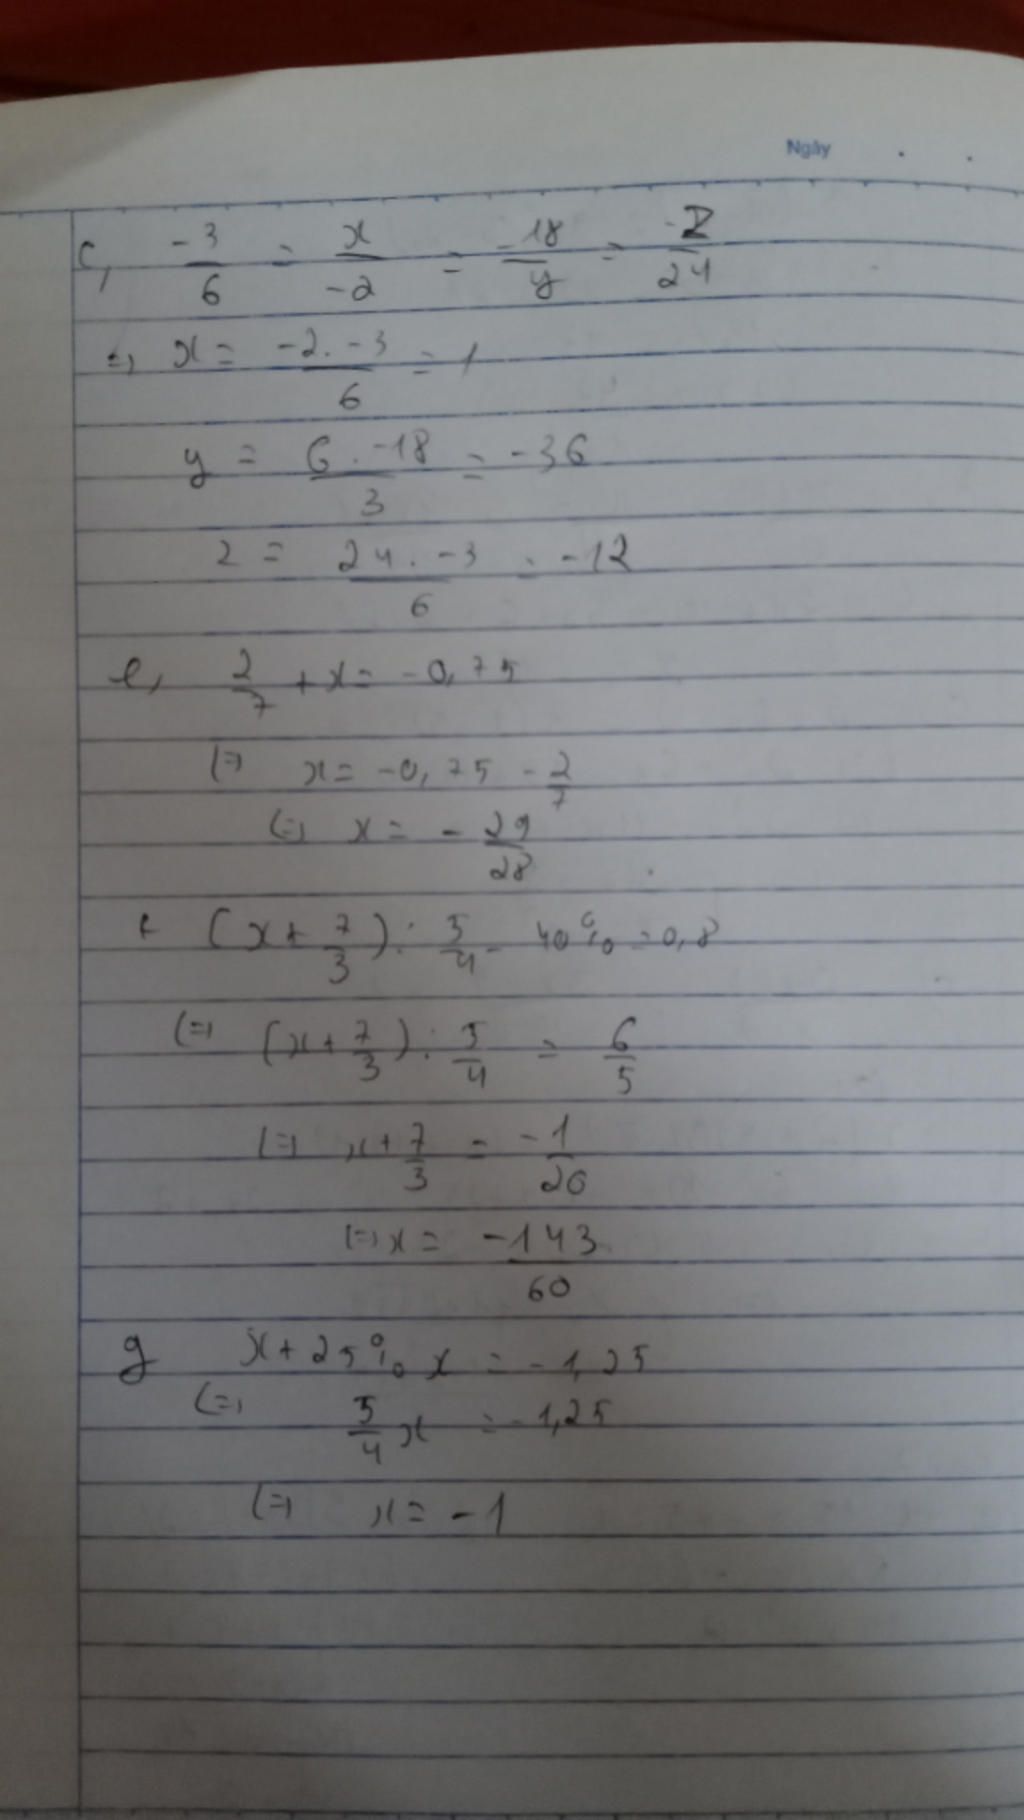 Ngày
c, -3/6 = x/-2 = -18/y = -Z/24
=> x = -2.-3/6 = 1
y = 6.-18/3 = -36
z = 24.-3/6 = -12
e, 2/7 + x = -0,75
<=> x = -0,75 - 2/7
<=> x = -29/28
f (x + 7/3) : 5/4 - 40% = 0,8
<=> (x + 7/3) : 5/4 = 6/5
<=> x + 7/3 = -1/20
<=> x = -143/60
g x + 25% x = -1,25
<=> 5/4 x = -1,25
<=> x = -1